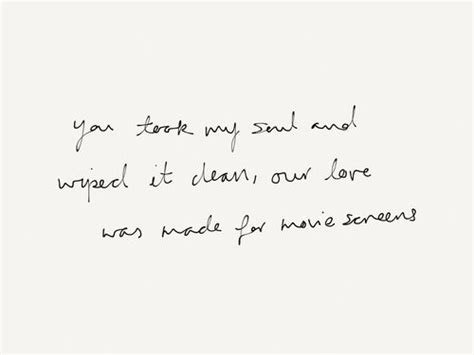 you took my soul and
wiped it clean, our love
was made for movie screens